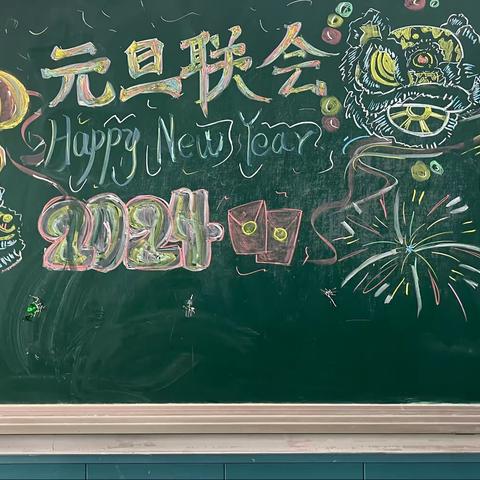 元旦联会
Happy New Year
2024